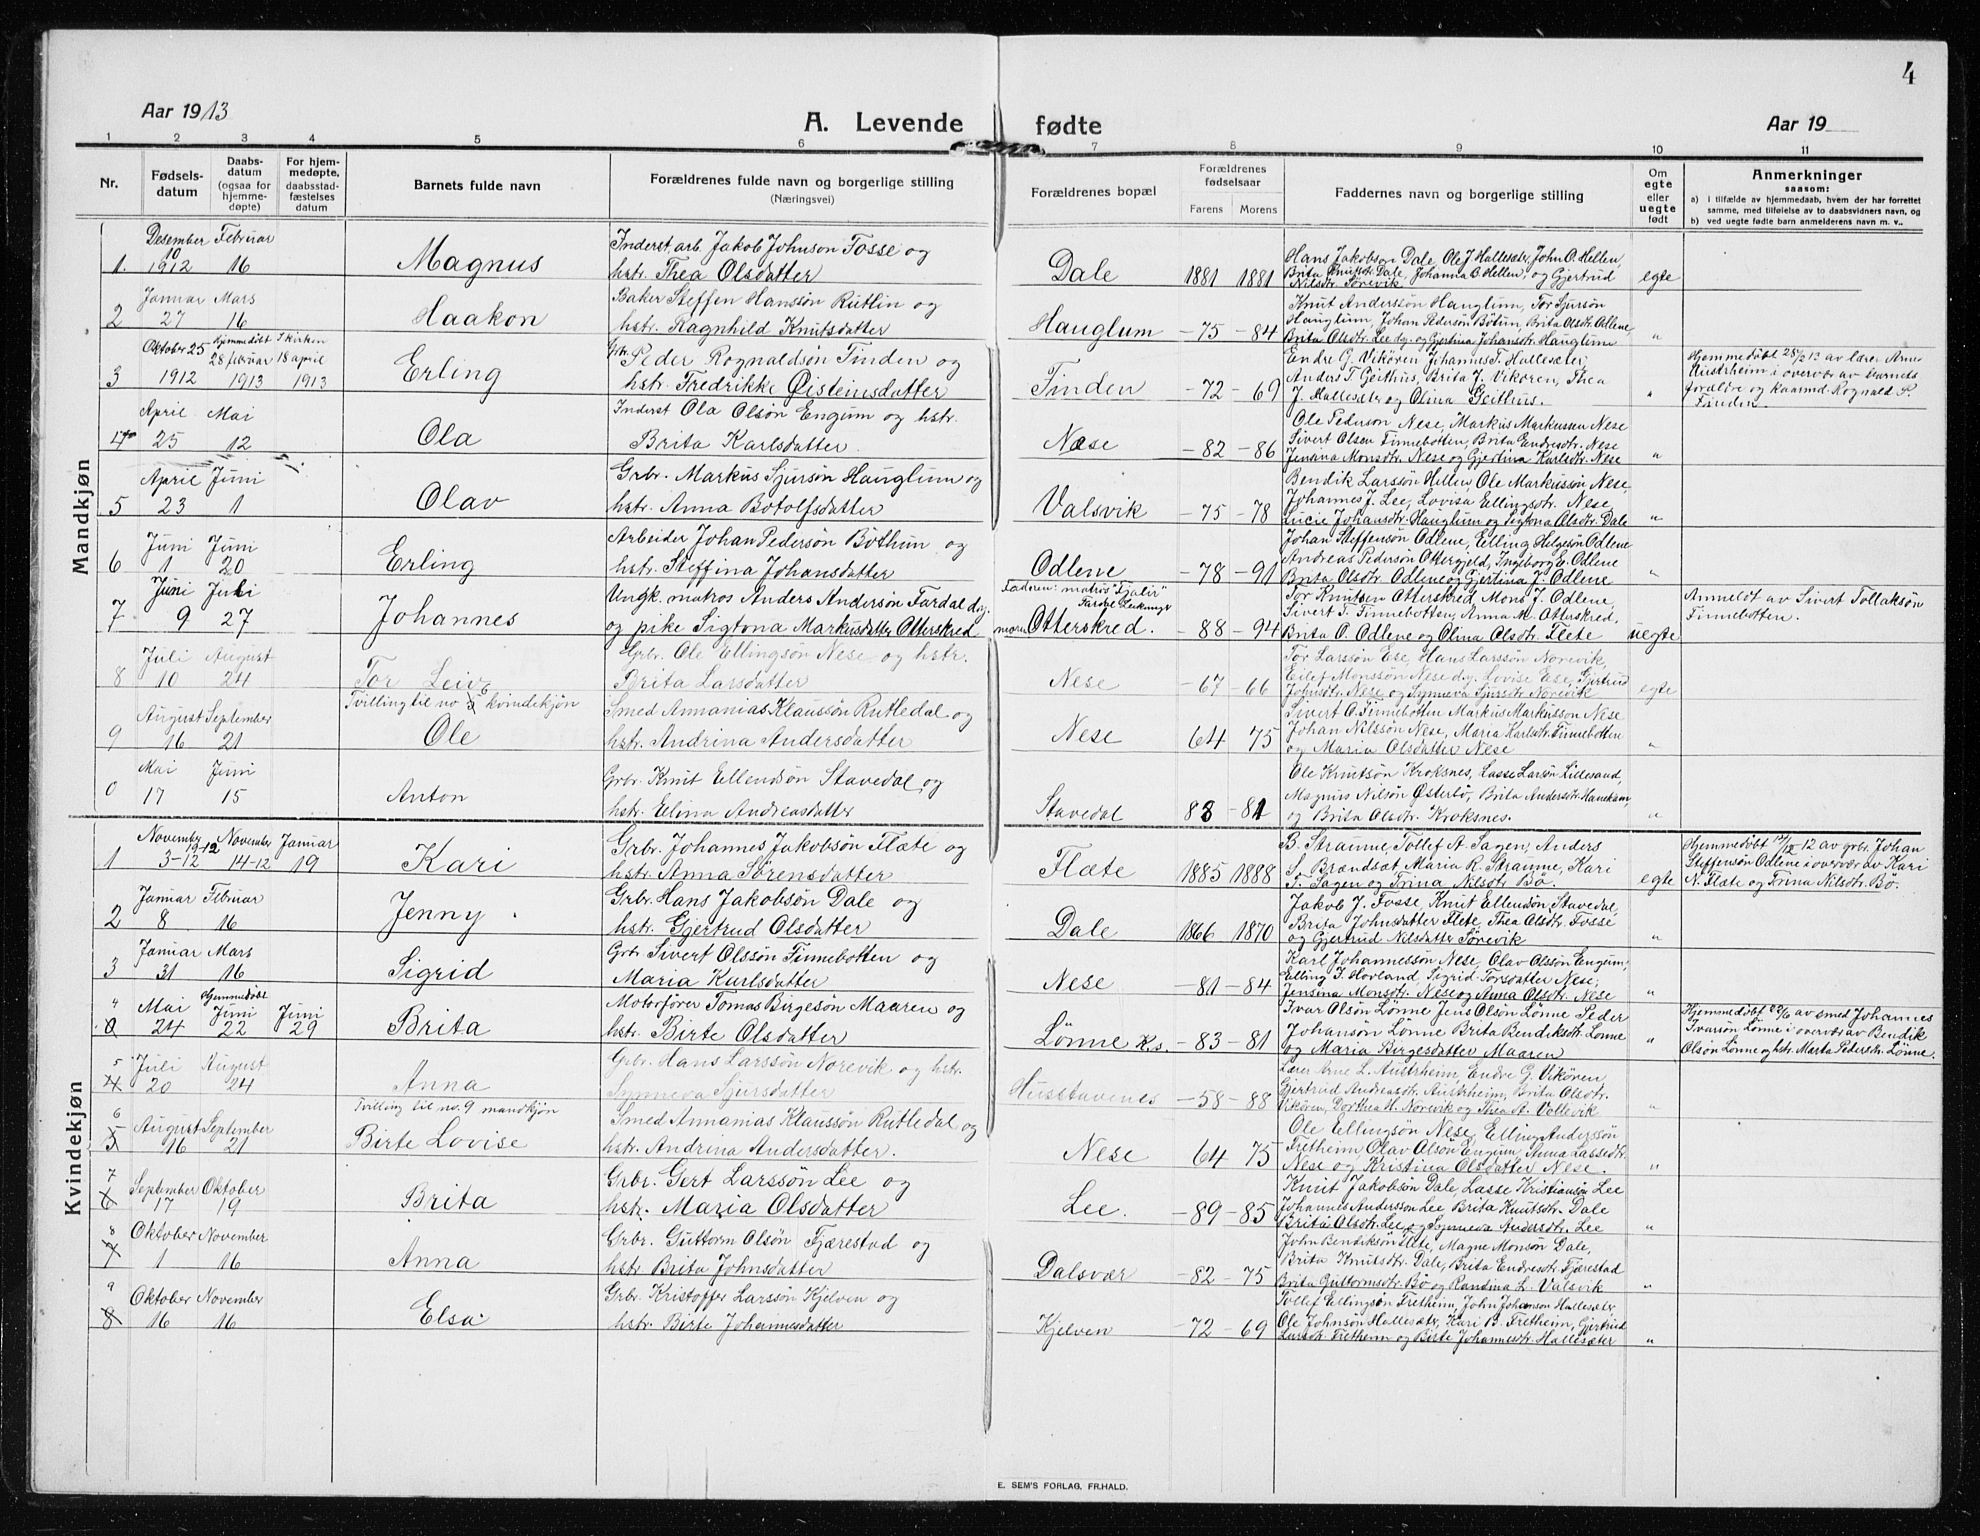 4
Aar 1913
A. Levende fødte
Aar 19
1 2 3 4 5 6 7 8 9 10 11
Nr.
Fødselsdatum
Daabsdatum (ogsaa for hjemmedøpte)
For hjemmedøpte, daabsstadfæstelses datum
Barnets fulde navn
Forældrenes fulde navn og borgerlige stilling (Næringsvei)
Forældrenes bopæl
Forældrenes fødselsaar
Farens Morens
Faddernes navn og borgerlige stilling
Om egte eller uegte født
Anmerkninger
saasom:
a) I tilfælde av hjemmedaab, hvem der har forrettet samme, med tilføielse av to daabsvidners navn, og
b) ved uegte fødte barn anmelderens navn m. v..
Mandkjøn
1. Desember 10 1912 Februar 16 Magnus
Inderst arb. Jakob Johnson Fosse og
hstr. Thea Olsdatter
Dale 1881 1881
Hans Jakobson Dale, Ole J. Hallesætr, John O. Hellen,
Brita Knutstr. Dale, Johanna O. Hellen, og Gjertrud
Nilsdtr. Sørevik
egte
2 Januar 27 Mars 16 Haakon
Baker Steffen Hanssøn Rutlin og
hstr. Ragnhild Knutsdatter
Hauglum -75 -84
Knut Anderssøn Hauglum, Tor Sjursøn
Hauglum, Johan Pedersøn Bøtun, Brita Olsdtr. Odlene,
Brita Olsdtr. Lee og Gjertina Johansdtr. Hauglum
"
3 Oktober 25 1912 Hjemmedøbt 28 februar 1913 I kirken 18 april 1913 Erling
Grbr. Peder Rognaldsøn Tinden og
hstr. Fredrikke Øisteinsdatter
Tinden -72 -69
Endre G. Vikøren, Johannes T. Hallesæter,
Anders T. Geithus, Brita J. Vikøren, Thea
J. Hallesætr og Olina Geithus.
"
Hjemmedøbt 28/2 13 av lærer Arne
Austrheim i overvær av barnets
forældre og kaarmd. Rognald P.
Tinden.
4 April 25 Mai 12 Ola
Inderst Ola Olsøn Engum og hstr.
Brita Karlsdatter
Nese -82 -86
Ole Pederson Nese, Markus Markussen Nese
Sivert Olsen Finnebotten, Brita Endresdtr. Nese
Jensina Monsdtr. Nese og Gjertina Karlsdtr. Nese
"
5 April 23 Juni 1 Olav
Grbr. Markus Sjursøn Hauglum og
hstr. Anna Botolfsdatter
Valsvik -75 -78
Bendik Larssøn Hellen, Ole Markussøn Nese,
Johannes J. Lee, Lovisa Ellingsdtr. Nese,
Lucie Johansdtr. Hauglum og Sigtona Olsdtr. Dale
"
6 Juni 1 Juni 20 Erling
Arbeider Johan Pedersøn Bøthun og
hstr. Steffina Johansdatter
Odlene -78 -91
Johan Steffenson Odlene, Elling Helgesøn Odlene
Andreas Pedersøn Ottergjeld, Ingeborg E. Odlene
Brita Olsdtr. Odlene og Gjertina J. Odlene
"
7 Juni 9 Juli 27 Johannes
Ungk. matros Anders Andersøn Fardal
og pike Sigtona Markusdatter Otterskred
Faderen: matros "Fjalir"
Otterskred. -88 -94
Tor Knutsen Otterskred, Mons J. Odlene,
Sivert T. Finnebotten, Anna M. Otterskred,
Brita O. Odlene og Olina Olsdtr. Flete
uegte
Anmeldt av Sivert Tollaksøn
Finnebotten.
8 Juli 10 August 24 Tor Leiv
Grbr. Ole Ellingsøn Nese og hstr.
Brita Larsdatter
Nese -67 -66
Tor Larssøn Ese, Hans Larssøn Norevik,
Eilef Monssøn Nese, Lovise Ese, Gjertrud
Johnsdtr. Nese og Synneva Sjursdtr. Norevik
egte
9 August 16 September 21 Tvilling til no 6 kvindekjøn
Ole
Smed Annanias Klaussøn Rutledal og
hstr. Andrina Andersdatter
Nese 64 75
Sivert O. Finnebotten Markus Markusson Nese
Johan Nilssøn Nese, Maria Karlsdtr. Finnebotten
og Maria Olsdatter Nese
"
0 Mai 17 Juni 15 Anton
Grbr. Knut Ellendsøn Stavedal og
hstr. Elina Andreasdatter
Stavedal 83 -81
Ole Knutsøn Kroksnes, Lasse Larsøn Lillesand,
Magnus Nilsøn Østerbø, Brita Andersdtr. Hanekam,
og Brita Olsdtr. Kroksnes.
"
Kvindekjøn
1 November 3-12 1912 November 14-12 Januar 19 Kari
Grbr. Johannes Jakobsøn Flæte og
hstr. Anna Sørensdatter
Flæte 1885 1888
B. Straume Tollef A. Sagen, Anders
S. Brændsæt Maria R. Straume, Kari
S. Sagen og Trina Nilsdtr. Bø.
egte
Hjemmedøbt 14/11 12 av grbr. Johan
Steffensøn Odlene i overvær av Kari
N. Flæte og Trina Nilsdtr. Bø.
2 Januar 8 Februar 16 Jenny.
Grbr. Hans Jakobsøn Dale og
hstr. Gjertrud Olsdatter
Dale 1866 1870
Jakob J. Fosse, Knut Ellensøn Stavedal,
Brita Johnsdatter Flete, Thea Olsdtr. Fosse
og Gjertrud Nilsdatter Sørevik
"
3 Januar 31 Mars 16 Sigrid
Grbr. Sivert Olssøn Finnebotten og
Maria Karlsdatter
Nese -81 -84
Karl Johannesson Nese, Olav Olsøn Engum;
Elling I. Hovland, Sigrid Torsdatter Nese,
Jensina Monsdtr. Nese og Anna Olsdtr. Nese
"
" 0 Mai 24 Hjemmedøbt Juni 22 Juni 29 Brita
Motorfører Tomas Birgesøn Maaren og
hstr. Birte Olsdatter
Lønne K.s. -83 -81
Ivar Olsøn Lønne Jens Olsøn Lønne Peder
Johansøn Lønne Brita Bendiksdtr. Lønne
og Maria Birgesdatter Maaren
"
Hjemmedøbt 22/6 av smed Johannes
Ivarsøn Lønne i overvær av Bendik
Olsøn Lønne og hstr. Marta Pedersdtr. Lønne.
5 4 Juli 20 August 24 Anna
Grbr. Hans Larssøn Norevik og hstr.
Synneva Sjursdatter
Husstavenes -58 -88
Lærer Arne L. Austrheim, Endre G. Vikøren,
Gjertrud Andreasdtr. Austrheim, Brita Olsdtr.
Vikøren, Dorthea H. Norevik og Thea A. Vollevik
"
6 5 August 16 September 21 Tvilling til no. 9 mandkjøn
Birte Lovise
Smed Annanias Klaussøn Rutledal og
hstr. Andrina Andersdatter.
Nese 64 75
Ole Ellingsøn Nese, Elling Anderssøn
Fretheim, Olav Olsøn Engum, Anna Lassedtr.
Nese og Kristina Olsdatter Nese.
"
7 6 September 17 Oktober 19 Brita
Grbr. Gert Larssøn Lee og
hstr. Maria Olsdatter
Lee -89 -85
Knut Jakobsøn Dale, Lasse Kristiansøn Lee
Johannes Andersson Lee Brita Knutsdtr. Dale
Brita Olsdtr. Lee og Synneva Andersdtr. Lee
"
8 7 Oktober 1 November 16 Anna
Grbr. Guttorm Olsøn Fjærestad og
hstr Brita Johnsdatter
Dalsvær -82 -75
John Bendiksøn Flete, Magne Monsøn Dale,
Brita Knutsdtr. Dale, Brita Endresdtr Fjærestad
Brita Guttormsdtr. Bø og Randina L. Valsvik
"
9 8 Oktober 16 November 16 Elsa
Grbr. Kristoffer Larssøn Kjelven og
hstr. Birte Johannesdatter
Kjelven -72 -69
Tollef Ellingsøn Fretheim, John Johanson Hallesæter
Ole Johnsøn Hallesætr, Kari B. Fretheim, Gjertrud
Larsdtr. Fretheim og Birte Johannesdtr. Hallesæter
"
E. SEM'S FORLAG, FR.HALD.